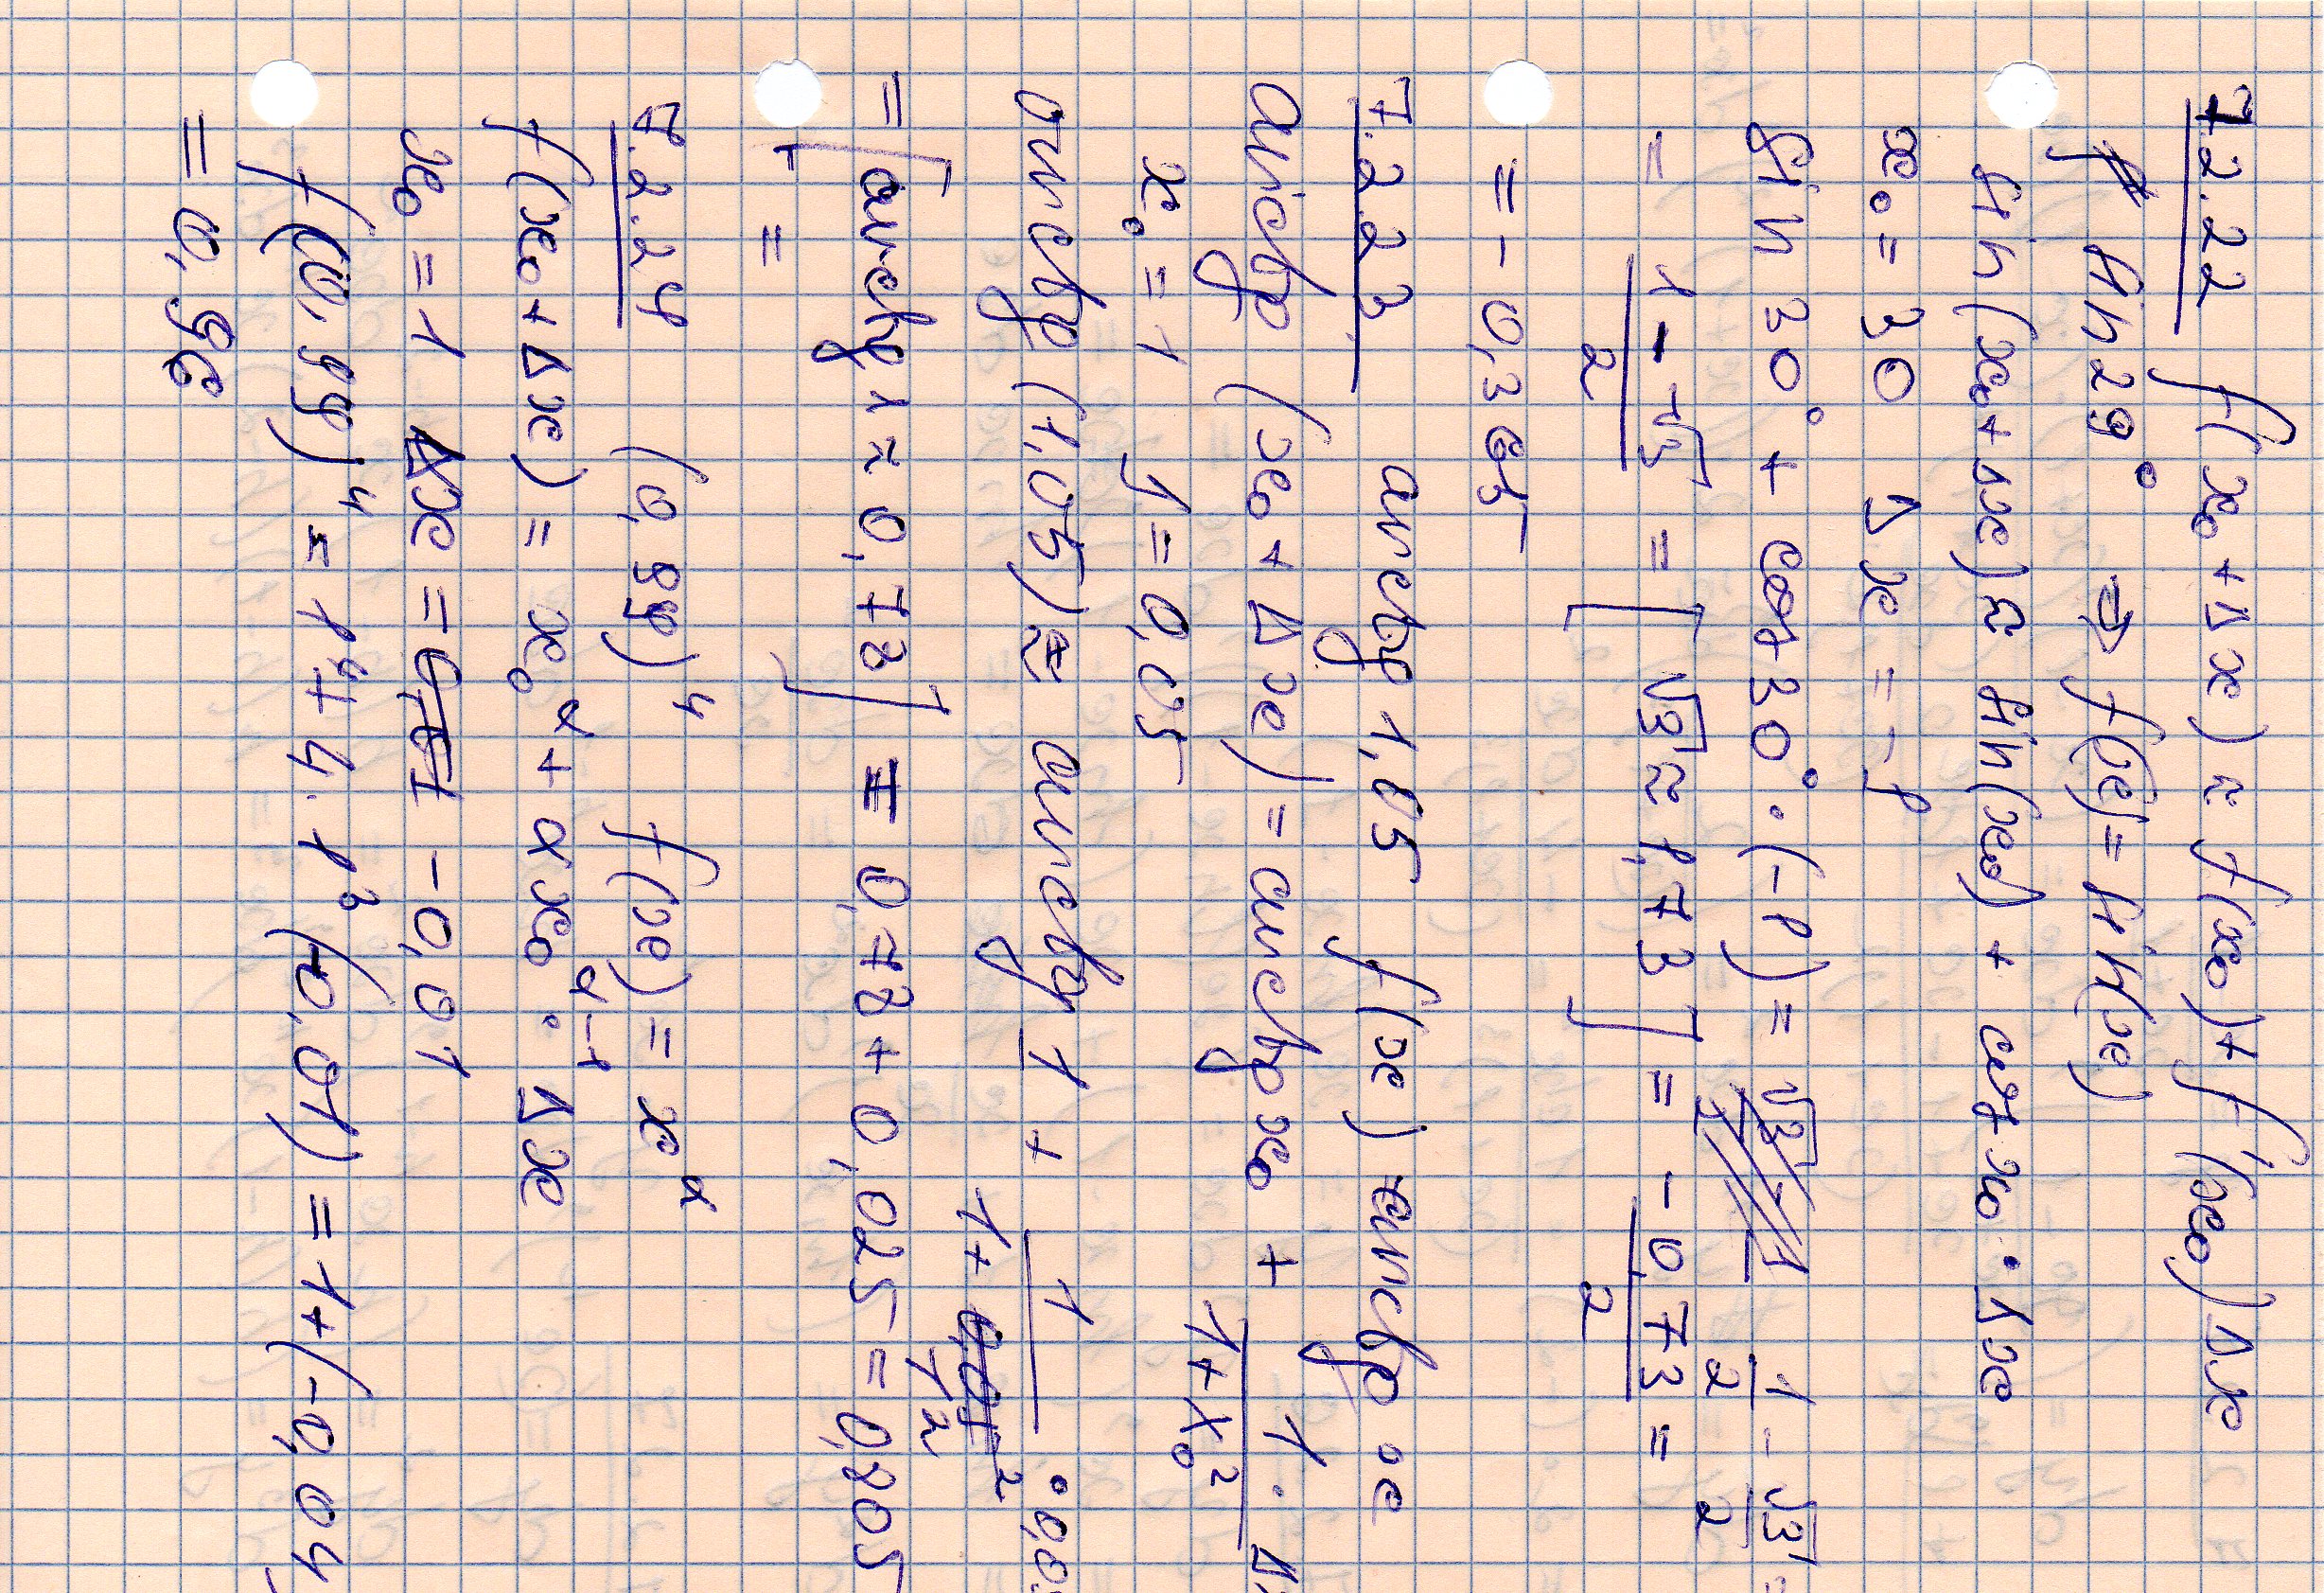 7.2.22 f(x₀+Δx) ≈ f(x₀)+f'(x₀)Δx
sin 29° ⇒ f(x) = sin(x)
sin(x₀+Δx) ≈ sin(x₀) + cos x₀ · Δx
x₀ = 30 Δx = -1
sin 30° + cos 30° · (-1) = √3/2 - 1 1/2 - √3/2 =
= (1-√3)/2 = [√3 ≈ 1,73] = -0,73/2 =
= -0,365
7.2.23. arctg 1,05 f(x) = arctg x
arctg (x₀ + Δx) = arctg x₀ + 1/(1+x₀²) · Δ
x₀ = 1 Δ = 0,05
arctg (1,05) ≈ arctg 1 + 1/(1+0,05²) · 0,0
1²
= [arctg 1 ≈ 0,78] = 0,78 + 0,025 = 0,805
=
7.2.24 (0,99)⁴ f(x) = x^α
f(x₀+Δx) = x₀^α + αx₀^(α-1) · Δx
x₀ = 1 Δx = 0,01 -0,01
f(0,99)⁴ = 1⁴ + 4 · 1³ (-0,01) = 1+(-0,04)
= 0,96